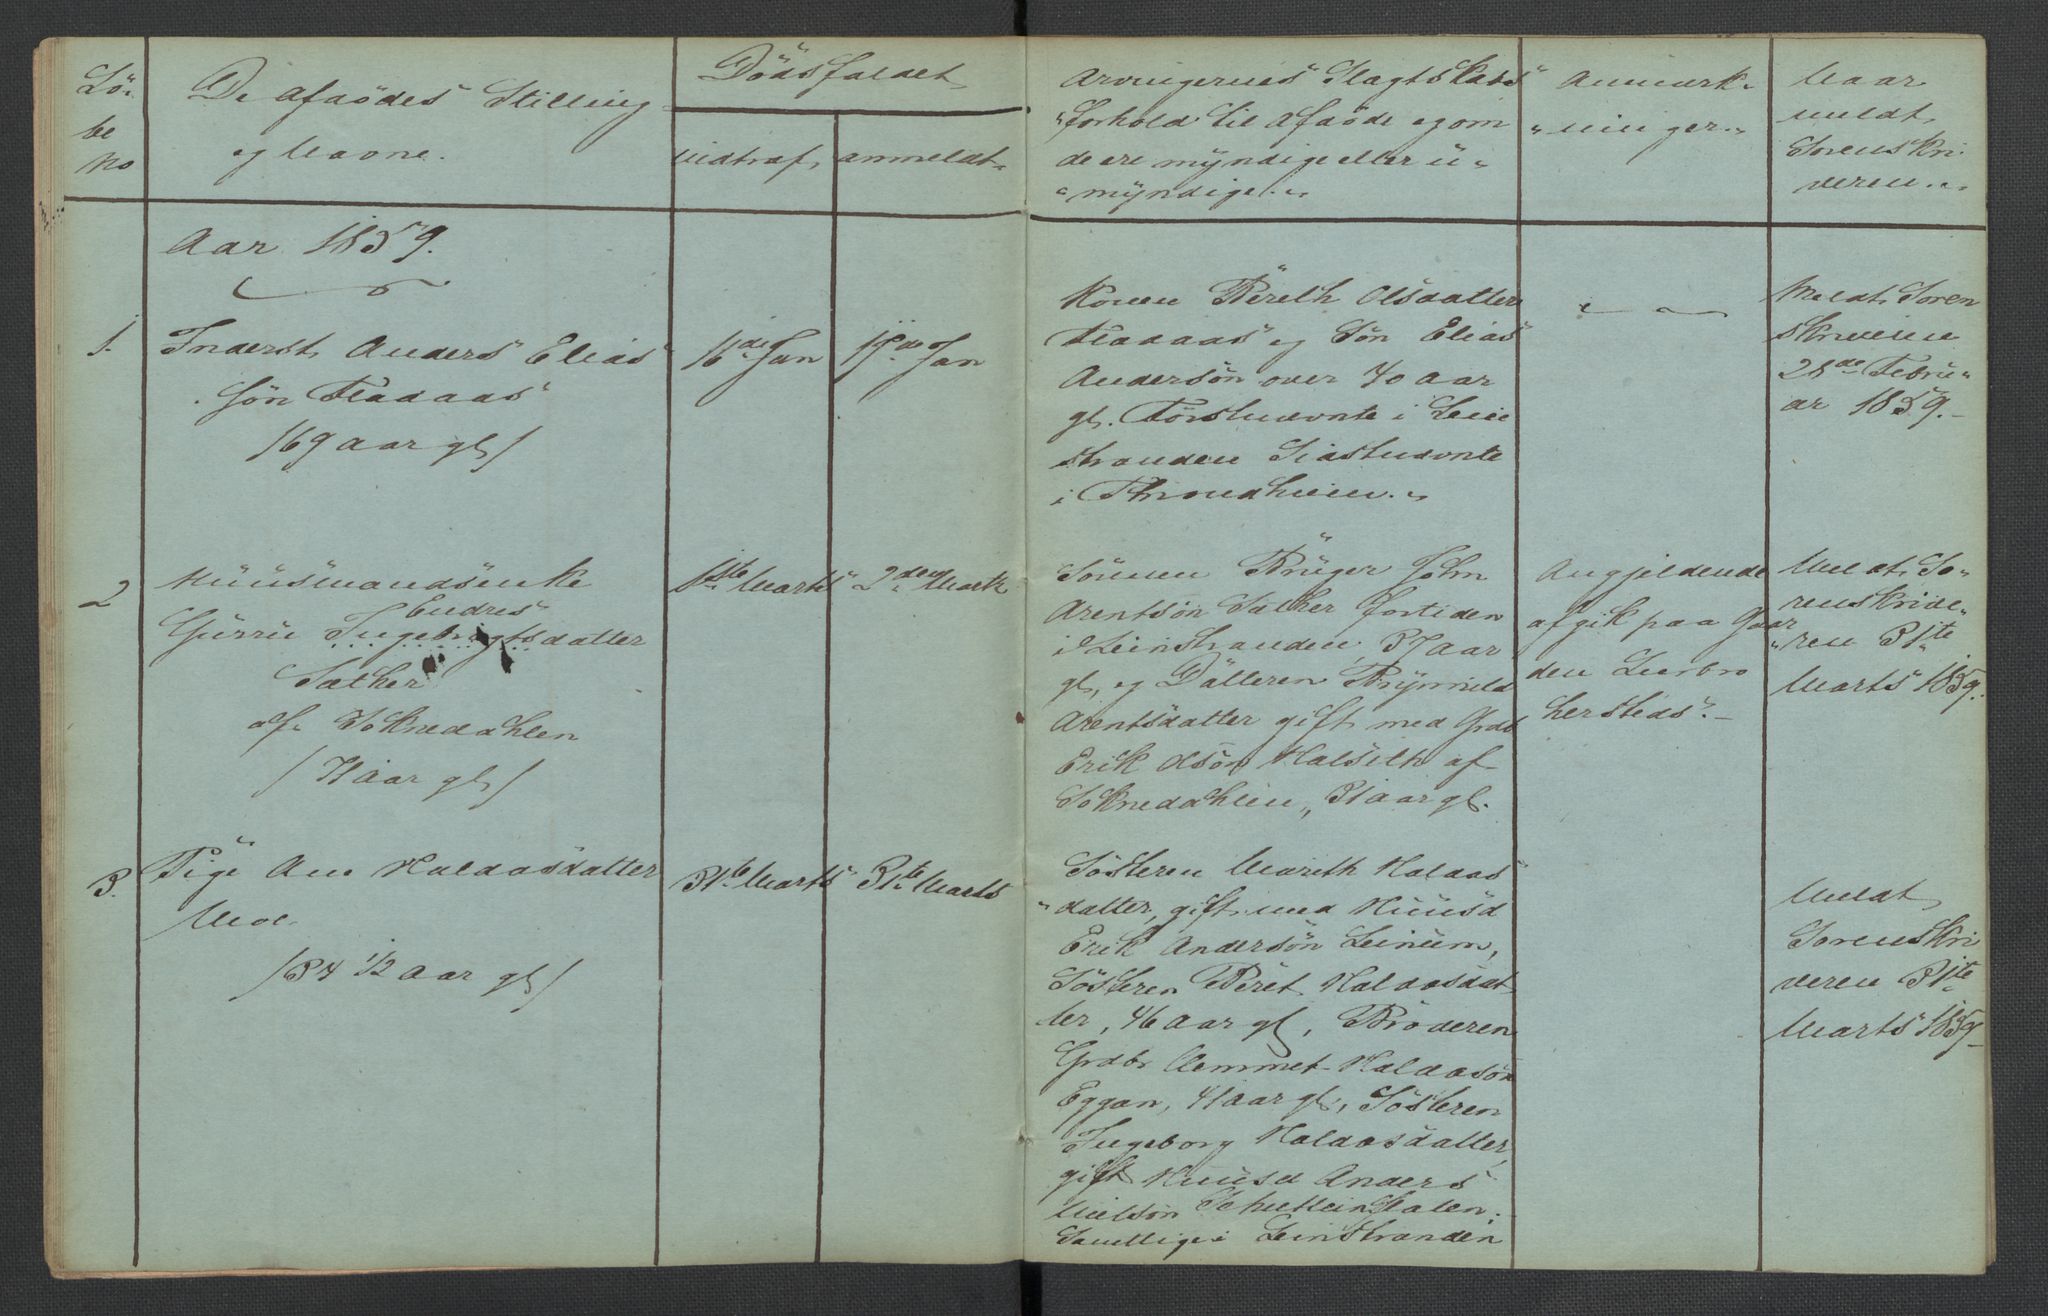 Lö-
be
No
De Afdödes Stilling
og Navne.
Dödsfaldet
indtraf, anmeldt
Arvingernes Slagtskabs
forhold til Afdöde og om
de ere myndige eller u-
myndige.
Anmærk-
ninger.
Naar
meldt
Sorenskri
veren.
Aar 1859.
1. Inderst Anders Elias
sön Flaaaas
/69 Aar gl/
16de Jan
17de Jan
Konen Bereth Olsdatter
og Sön Elias
Andersön over 40 Aar
gl. Förstnævnte i Lein
stranden Sidstnævnte
i Throndhiem.
Meldt Soren
skriveren
28de Febru-
ar 1859.
2 Huusmandsenke
Endres
Gurru Ingebrigtsdatter
Sæther
af Soknedahlen
/71 Aar gl/
1ste Marts
2den Marts
Sönnen Bruger John
Arentsön Sæther fortiden
i Leinstranden 37 Aar
gl, og Datteren Brynnild
Arentsdatter gift med Grdb
Erik Olsön Halseth af
Soknedahlen, 31 Aar gl.
Angjeldende
afgik paa Gaar
den Leerbro
hersteds.
Meldt So-
renskrive-
ren 31te
Marts 1859.
3. Pige Ane Haldosdatter
Moe
/34 1/2 Aar gl/
31te Marts
31te Marts
Sösteren Marith Haldos
datter, gift med Huusd
Erik Andersön Leinum,
Sösteren Beret Haldosdat-
ter, 46 Aar gl, Broderen
Grdbr Nemmet Haldosön
Eggan, 41 Aar gl, Sösteren
Ingeborg Haldosdatter,
gift Huusd Anders
Nielsön
Samtlige i Leinstranden
Meldt
Sorenskri
veren 31te
Marts 1859